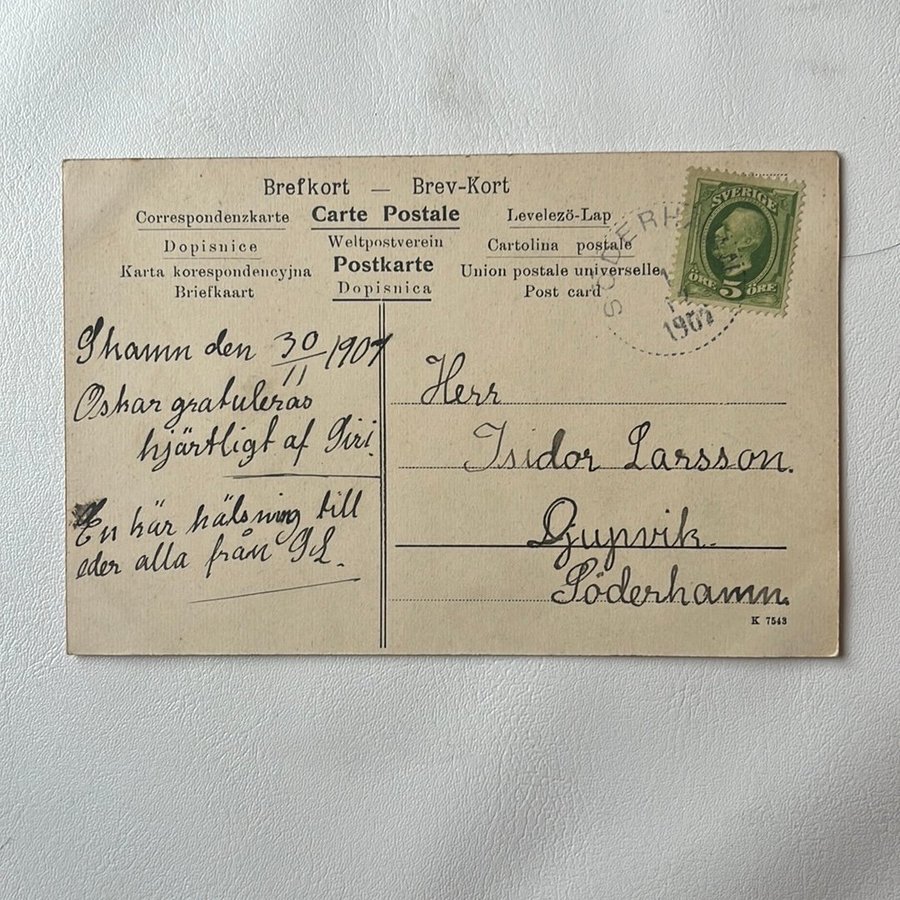 Brefkort — Brev-Kort
Correspondenzkarte Carte Postale Levelezö-Lap
Dopisnice Weltpostverein Cartolina postale
Karta korespondencyjna Postkarte Union postale universelle
Briefkaart Dopisnica Post card
SVERIGE
ÖRE 5 ÖRE
SÖDERH
1907
Shamn den 30/11 1907
Oskar gratuleras
hjärtligt af Siri.
En kär hälsning till
eder alla från S L.
Herr
Isidor Larsson.
Djupvik.
Söderhamn.
K 7543